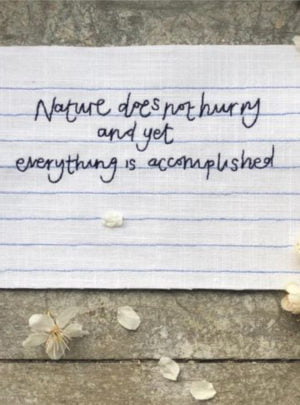 Nature does not hurry
and yet
everything is accomplished